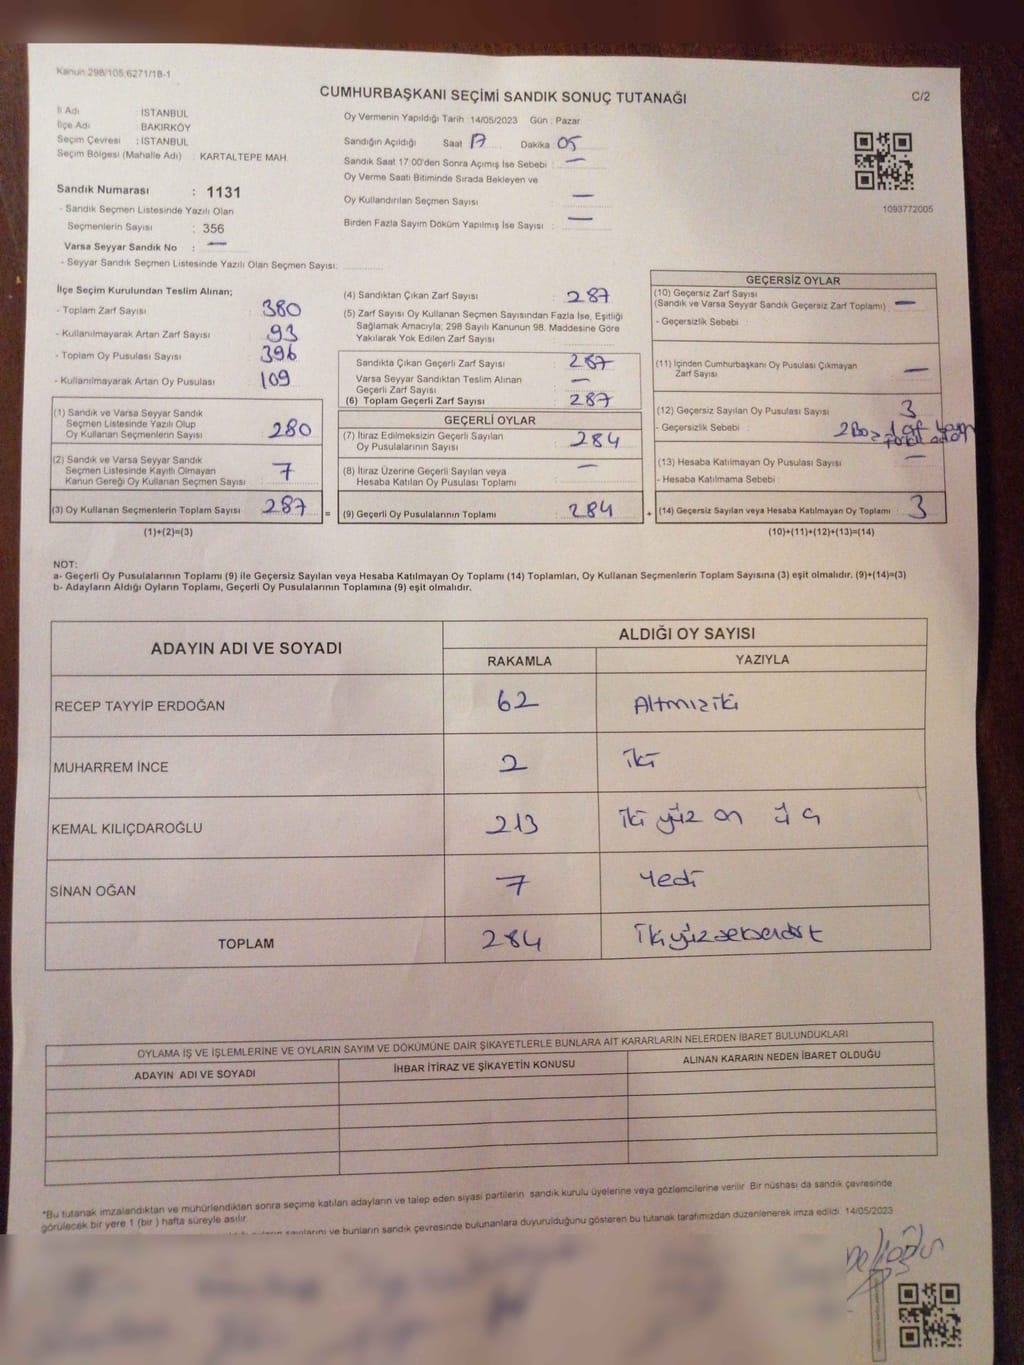 Kanun 298/105,6271/18-1
CUMHURBAŞKANI SEÇİMİ SANDIK SONUÇ TUTANAĞI
C/2
İl Adı : İSTANBUL
İlçe Adı : BAKIRKÖY
Seçim Çevresi : İSTANBUL
Seçim Bölgesi (Mahalle Adı) : KARTALTEPE MAH.
Sandık Numarası : 1131
- Sandık Seçmen Listesinde Yazılı Olan
Seçmenlerin Sayısı : 356
Varsa Seyyar Sandık No : —
- Seyyar Sandık Seçmen Listesinde Yazılı Olan Seçmen Sayısı:
Oy Vermenin Yapıldığı Tarih 14/05/2023 Gün : Pazar
Sandığın Açıldığı Saat 17 Dakika 05
Sandık Saat 17:00'den Sonra Açımış İse Sebebi : —
Oy Verme Saati Bitiminde Sırada Bekleyen ve
Oy Kullandırılan Seçmen Sayısı —
Birden Fazla Sayım Döküm Yapılmış İse Sayısı : —
1093772005
İlçe Seçim Kurulundan Teslim Alınan;
- Toplam Zarf Sayısı : 380
- Kullanılmayarak Artan Zarf Sayısı : 93
- Toplam Oy Pusulası Sayısı : 396
- Kullanılmayarak Artan Oy Pusulası : 109
(1) Sandık ve Varsa Seyyar Sandık
Seçmen Listesinde Yazılı Olup
Oy Kullanan Seçmenlerin Sayısı : 280
(2) Sandık ve Varsa Seyyar Sandık
Seçmen Listesinde Kayıtlı Olmayan
Kanun Gereği Oy Kullanan Seçmen Sayısı : 7
(3) Oy Kullanan Seçmenlerin Toplam Sayısı : 287
(1)+(2)=(3)
(4) Sandıktan Çıkan Zarf Sayısı : 287
(5) Zarf Sayısı Oy Kullanan Seçmen Sayısından Fazla İse, Eşitliği
Sağlamak Amacıyla; 298 Sayılı Kanunun 98. Maddesine Göre
Yakılarak Yok Edilen Zarf Sayısı :
Sandıkta Çıkan Geçerli Zarf Sayısı : 287
Varsa Seyyar Sandıktan Teslim Alınan
Geçerli Zarf Sayısı : —
(6) Toplam Geçerli Zarf Sayısı : 287
GEÇERLİ OYLAR
(7) İtiraz Edilmeksizin Geçerli Sayılan
Oy Pusulalarının Sayısı : 284
(8) İtiraz Üzerine Geçerli Sayılan veya
Hesaba Katılan Oy Pusulası Toplamı : —
= (9) Geçerli Oy Pusulalarının Toplamı : 284
GEÇERSİZ OYLAR
(10) Geçersiz Zarf Sayısı
(Sandık ve Varsa Seyyar Sandık Geçersiz Zarf Toplamı) : —
- Geçersizlik Sebebi :
(11) İçinden Cumhurbaşkanı Oy Pusulası Çıkmayan
Zarf Sayısı : —
(12) Geçersiz Sayılan Oy Pusulası Sayısı : 3
- Geçersizlik Sebebi : 2 Boş
(13) Hesaba Katılmayan Oy Pusulası Sayısı : —
- Hesaba Katılmama Sebebi :
+ (14) Geçersiz Sayılan veya Hesaba Katılmayan Oy Toplamı : 3
(10)+(11)+(12)+(13)=(14)
NOT:
a- Geçerli Oy Pusulalarının Toplamı (9) ile Geçersiz Sayılan veya Hesaba Katılmayan Oy Toplamı (14) Toplamları, Oy Kullanan Seçmenlerin Toplam Sayısına (3) eşit olmalıdır. (9)+(14)=(3)
b- Adayların Aldığı Oyların Toplamı, Geçerli Oy Pusulalarının Toplamına (9) eşit olmalıdır.
ADAYIN ADI VE SOYADI
ALDIĞI OY SAYISI
RAKAMLA YAZIYLA
RECEP TAYYİP ERDOĞAN 62 Altmıziki
MUHARREM İNCE 2 iki
KEMAL KILIÇDAROĞLU 213 iki yüz on üç
SİNAN OĞAN 7 Yedi
TOPLAM 284 İkiyüzseksendört
OYLAMA İŞ VE İŞLEMLERİNE VE OYLARIN SAYIM VE DÖKÜMÜNE DAİR ŞİKAYETLERLE BUNLARA AİT KARARLARIN NELERDEN İBARET BULUNDUKLARI
ADAYIN ADI VE SOYADI İHBAR İTİRAZ VE ŞİKAYETİN KONUSU ALINAN KARARIN NEDEN İBARET OLDUĞU
*Bu tutanak imzalandıktan ve mühürlendikten sonra seçime katılan adayların ve talep eden siyasi partilerin sandık kurulu üyelerine veya gözlemcilerine verilir. Bir nüshası da sandık çevresinde
görülecek bir yere 1 (bir ) hafta süreyle asılır.
ve bunların sandık çevresinde bulunanlara duyurulduğunu gösteren bu tutanak tarafımızdan düzenlenerek imza edildi. 14/05/2023